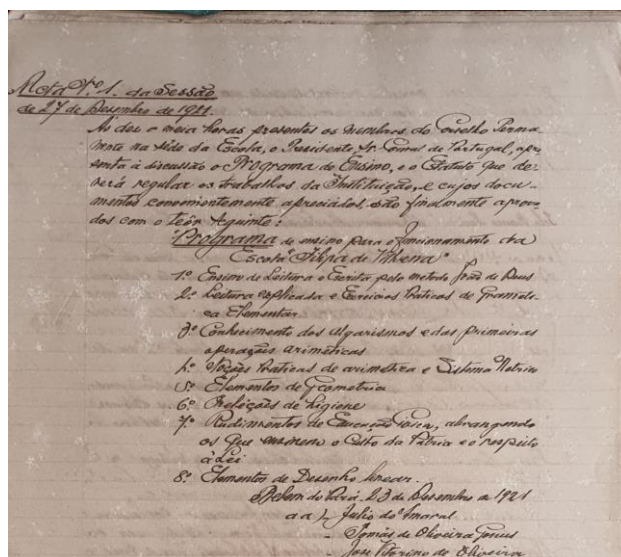 Acta Nº 1. da Sessão
de 27 de Dezembro de 1921.
Ás dez e meia horas presentes os membros do Conselho Perma-
nente na séde da Escola, o Presidente, Sr. Consul de Portugal, apre-
senta á discussão o Programa de Ensino, e o Estatuto que de-
verá regular os trabalhos da Instituição, e cujos docu-
mentos convenientemente apreciados, são finalmente aprova-
dos com o teôr seguinte:
"Programa de ensino para o funcionamento da
Escola "Filipa de Vilhena"
1º Ensino de Leitura e Escrita, pelo metodo João de Deus
2º Leitura explicada e Exercicios Praticos de Gramati-
ca Elementar
3º Conhecimento dos algarismos e das primeiras
operações arimeticas
4º Noções Praticas de arimetica e Sistema Metrico
5º Elementos de Geometria
6º Preleções de higiene
7º Rudimentos de Educação Civica, abrangendo
os que ensinem o Culto da Patria e o respeito
á Lei
8º Elementos de Desenho linear.
Belem do Pará, 23 de Dezembro de 1921
a a) Julio do Amaral
- Tomás de Oliveira
- José Vitorino de Oliveira